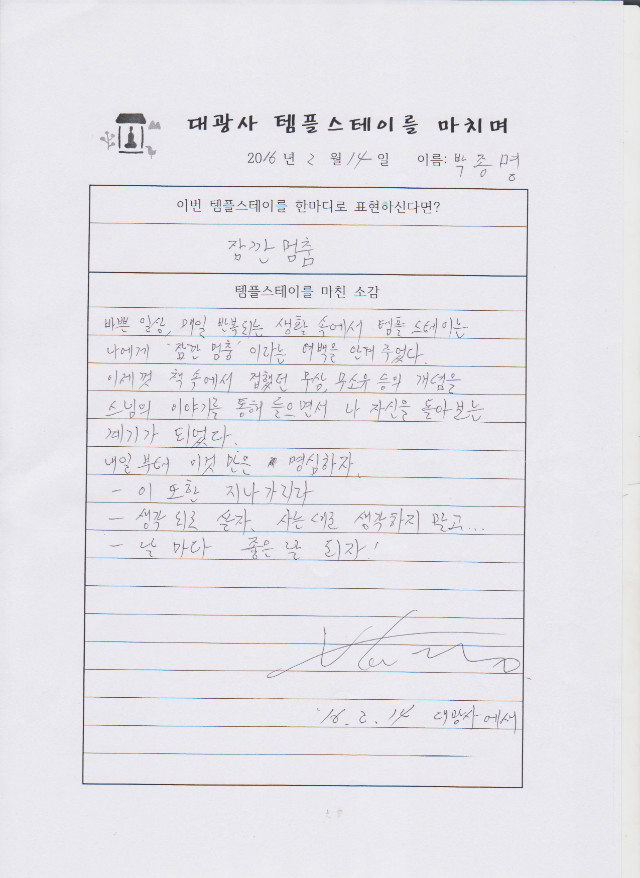 대광사 템플스테이를 마치며
2016 년 2 월 14 일 이름: 박종명
이번 템플스테이를 한마디로 표현하신다면?
잠깐 멈춤
템플스테이를 마친 소감
바쁜 일상, 매일 반복되는 생활 속에서 템플 스테이는
나에게 '잠깐 멈춤' 이라는 여백을 안겨 주었다.
이제껏 책 속에서 접했던 무상, 무소유 등의 개념을
스님의 이야기를 통해 들으면서 나 자신을 돌아보는
계기가 되었다.
내일 부터 이것 만은 명심하자.
- 이 또한 지나가리다
- 생각 되로 살자. 사는 데로 생각하지 말고...
- 날 마다 좋은 날 되자!
'16. 2. 14 대광사에서